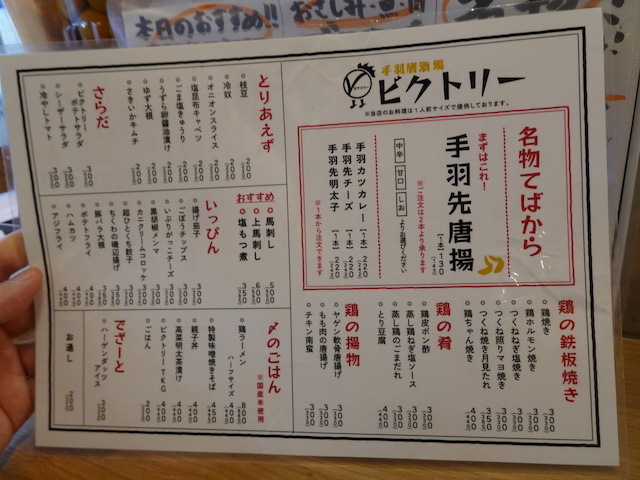 本日のおすすめ!!
手羽唐酒場
ビクトリー
※当店のお料理は1人前サイズで提供しております。
名物てばから
まずはこれ!
手羽先唐揚
[1本] 130
中辛 甘口 しお よりお選びください
※ご注文は2本より承ります
手羽カツカレー [1本] 220
手羽先チーズ [1本] 220
手羽先明太子 [1本] 220
※1本から注文できます
鶏の鉄板焼き
鶏焼き 300
鶏ホルモン焼き 300
つくねねぎ塩焼き 300
つくね照りマヨ焼き 300
つくね焼き月見たれ 350
鶏ちゃん焼き 400
鶏の肴
鶏皮ポン酢 300
蒸し鶏ねぎ塩ソース 300
蒸し鶏のごまだれ 300
とり豆腐 400
鶏の揚物
ヤゲン軟骨唐揚げ 300
もも肉の唐揚げ 300
チキン南蛮 300
とりあえず
枝豆 200
冷奴 200
オニオンスライス 200
塩昆布キャベツ 200
ごま塩きゅうり 200
うずら卵醤油漬け 200
ゆず大根 200
さきいかキムチ 200
さらだ
ビクトリーポテトサラダ 300
シーザーサラダ 300
冷やしトマト 300
おすすめ
馬刺し 500
上馬刺し 600
塩もつ煮 350
いっぴん
揚げ茄子 300
ごぼうチップス 300
いぶりがっこチーズ 300
黒胡椒メンマ 300
カニクリームコロッケ 300
超ひとくち餃子 300
ちくわの磯辺揚げ 300
豚バラ大根 400
ポテトフライ 400
ハムカツ 400
アジフライ 400
〆のごはん
※国産米使用
鶏ラーメン 800
ハーフサイズ 400
特製味噌焼きそば 450
親子丼 400
高菜明太茶漬け 400
ビクトリーTKG 400
ごはん 200
でざーと
ハーゲンダッツアイス 300
お通し 200